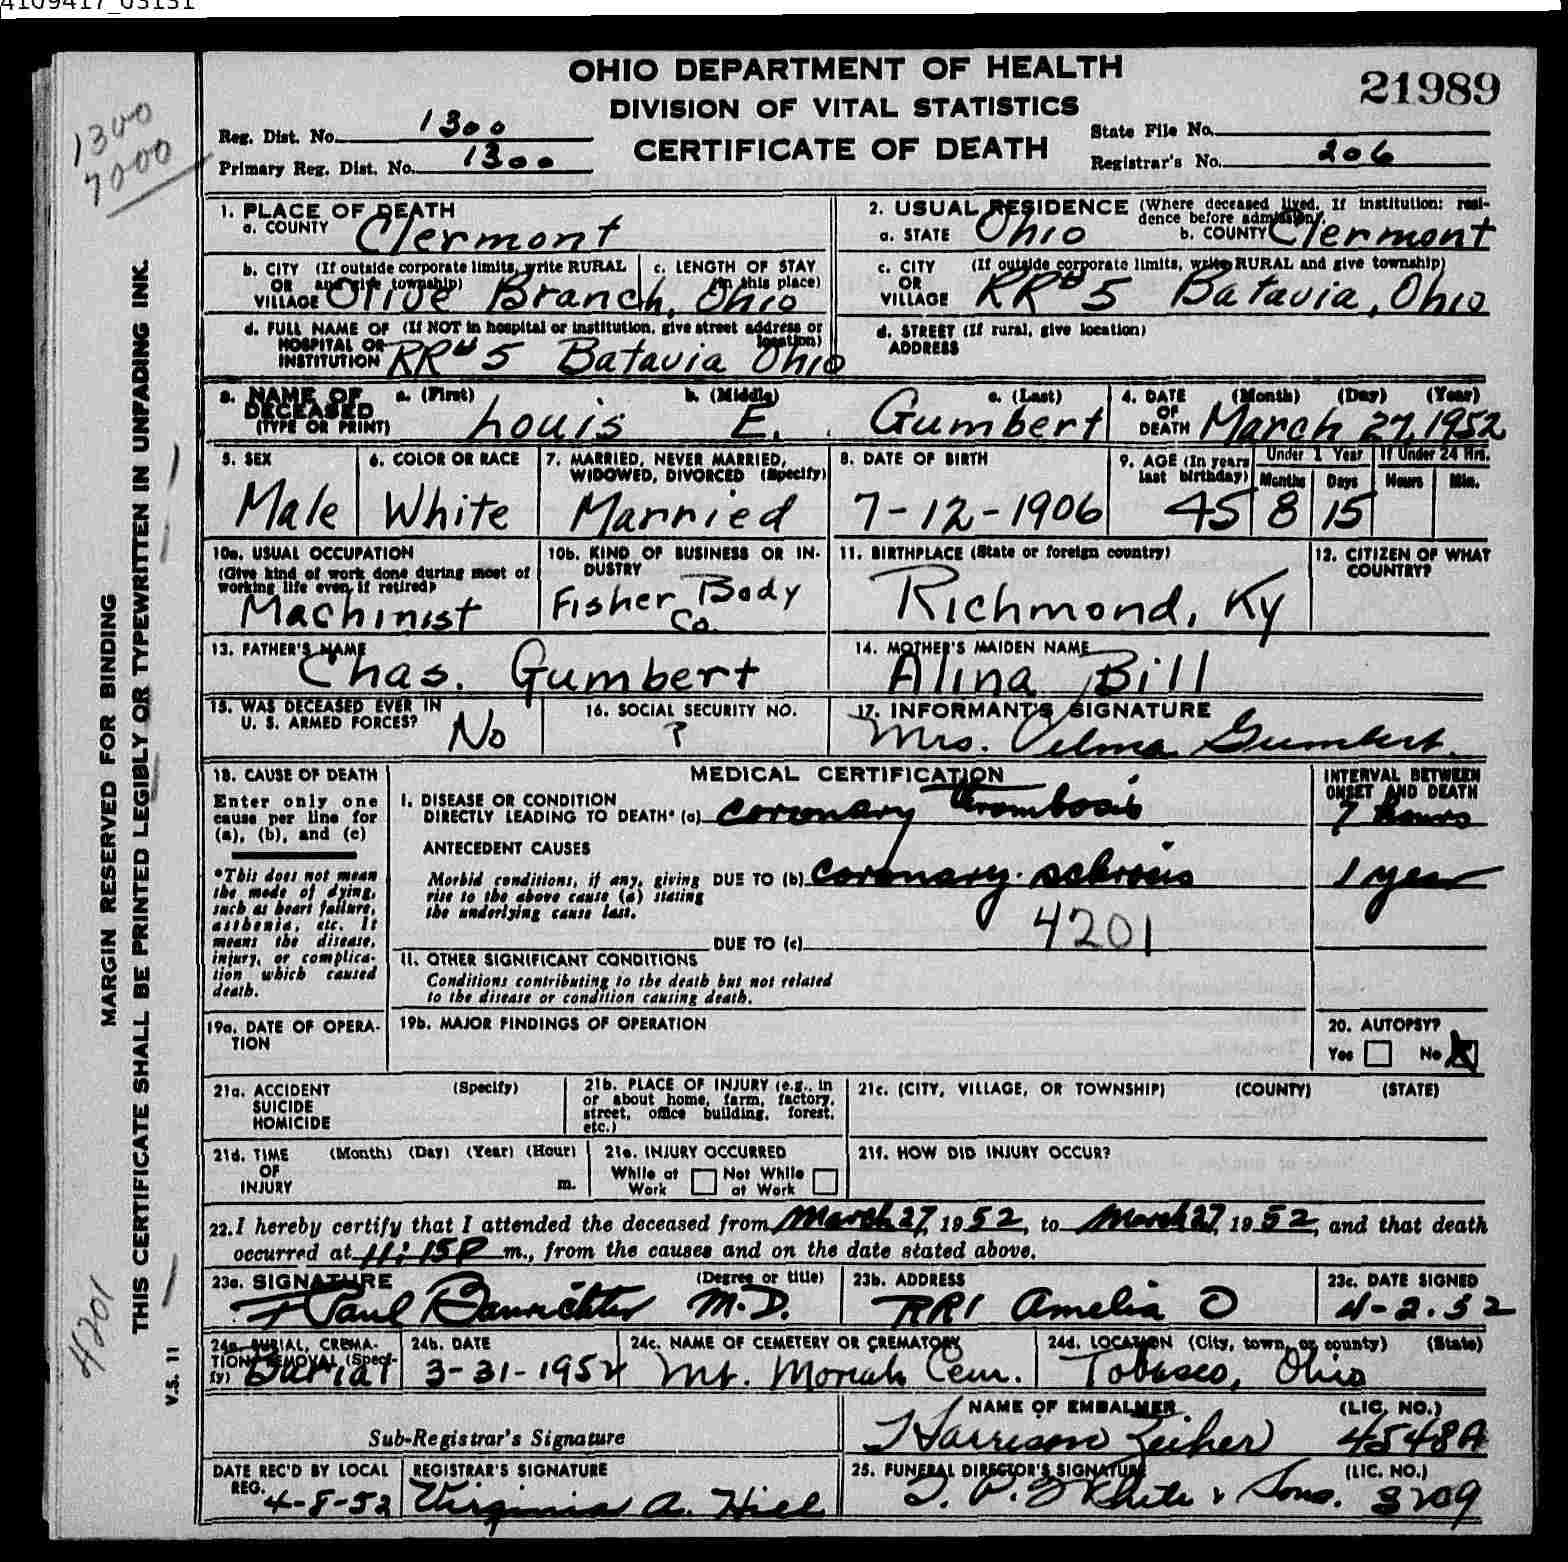 4109417_03151
OHIO DEPARTMENT OF HEALTH
DIVISION OF VITAL STATISTICS
CERTIFICATE OF DEATH
21989
1300
7000
Reg. Dist. No. 1300
Primary Reg. Dist. No. 1300
State File No.
Registrar's No. 206
MARGIN RESERVED FOR BINDING
THIS CERTIFICATE SHALL BE PRINTED LEGIBLY OR TYPEWRITTEN IN UNFADING INK.
1. PLACE OF DEATH
a. COUNTY Clermont
2. USUAL RESIDENCE (Where deceased lived. If institution: resi-
dence before admission).
a. STATE Ohio b. COUNTY Clermont
b. CITY (If outside corporate limits, write RURAL
OR and give township)
VILLAGE Olive Branch, Ohio
c. LENGTH OF STAY
(in this place)
c. CITY (If outside corporate limits, write RURAL and give township)
OR
VILLAGE RR# 5 Batavia, Ohio
d. FULL NAME OF (If NOT in hospital or institution, give street address or
location)
HOSPITAL OR
INSTITUTION RR# 5 Batavia Ohio
d. STREET (If rural, give location)
ADDRESS
3. NAME OF
DECEASED
(TYPE OR PRINT)
a. (First) b. (Middle) c. (Last)
Louis E. Gumbert
4. DATE (Month) (Day) (Year)
OF
DEATH March 27, 1952
5. SEX
Male
6. COLOR OR RACE
White
7. MARRIED, NEVER MARRIED,
WIDOWED, DIVORCED (Specify)
Married
8. DATE OF BIRTH
7-12-1906
9. AGE (In years
last birthday)
45
Under 1 Year
Months Days
8 15
If Under 24 Hrs.
Hours Min.
10a. USUAL OCCUPATION
(Give kind of work done during most of
working life even if retired)
Machinist
10b. KIND OF BUSINESS OR IN-
DUSTRY
Fisher Body
Co.
11. BIRTHPLACE (State or foreign country)
Richmond, Ky
12. CITIZEN OF WHAT
COUNTRY?
13. FATHER'S NAME
Chas. Gumbert
14. MOTHER'S MAIDEN NAME
Alina Bill
15. WAS DECEASED EVER IN
U. S. ARMED FORCES?
No
16. SOCIAL SECURITY NO.
?
17. INFORMANT'S SIGNATURE
Mrs. Velma Gumbert.
18. CAUSE OF DEATH
Enter only one
cause per line for
(a), (b), and (c)
*This does not mean
the mode of dying,
such as heart failure,
asthenia, etc. It
means the disease,
injury, or complica-
tion which caused
death.
MEDICAL CERTIFICATION
I. DISEASE OR CONDITION
DIRECTLY LEADING TO DEATH* (a) coronary thrombosis
ANTECEDENT CAUSES
Morbid conditions, if any, giving
rise to the above cause (a) stating
the underlying cause last.
DUE TO (b) coronary sclrosis
4201
DUE TO (c)
II. OTHER SIGNIFICANT CONDITIONS
Conditions contributing to the death but not related
to the disease or condition causing death.
INTERVAL BETWEEN
ONSET AND DEATH
7 hours
1 year
19a. DATE OF OPERA-
TION
19b. MAJOR FINDINGS OF OPERATION
20. AUTOPSY?
Yes No X
21a. ACCIDENT (Specify)
SUICIDE
HOMICIDE
21b. PLACE OF INJURY (e.g., in
or about home, farm, factory,
street, office building, forest,
etc.)
21c. (CITY, VILLAGE, OR TOWNSHIP) (COUNTY) (STATE)
21d. TIME (Month) (Day) (Year) (Hour)
OF
INJURY m.
21e. INJURY OCCURRED
While at Work Not While at Work
21f. HOW DID INJURY OCCUR?
22. I hereby certify that I attended the deceased from March 27, 1952, to March 27, 1952, and that death
occurred at 11:15P m., from the causes and on the date stated above.
23a. SIGNATURE (Degree or title)
Paul M.D.
23b. ADDRESS
RR1 Amelia O
23c. DATE SIGNED
4-2-52
4201
24a. BURIAL, CREMA-
TION, REMOVAL (Speci-
fy) Burial
24b. DATE
3-31-1952
24c. NAME OF CEMETERY OR CREMATORY
Mt. Moriah Cem.
24d. LOCATION (City, town, or county) (State)
Tobasco, Ohio
V.S. 11
Sub-Registrar's Signature
NAME OF EMBALMER (LIC. NO.)
Harrison 4548A
DATE REC'D BY LOCAL
REG. 4-8-52
REGISTRAR'S SIGNATURE
Virginia A. Hill
25. FUNERAL DIRECTOR'S SIGNATURE (LIC. NO.)
T. P. White & Sons. 3209